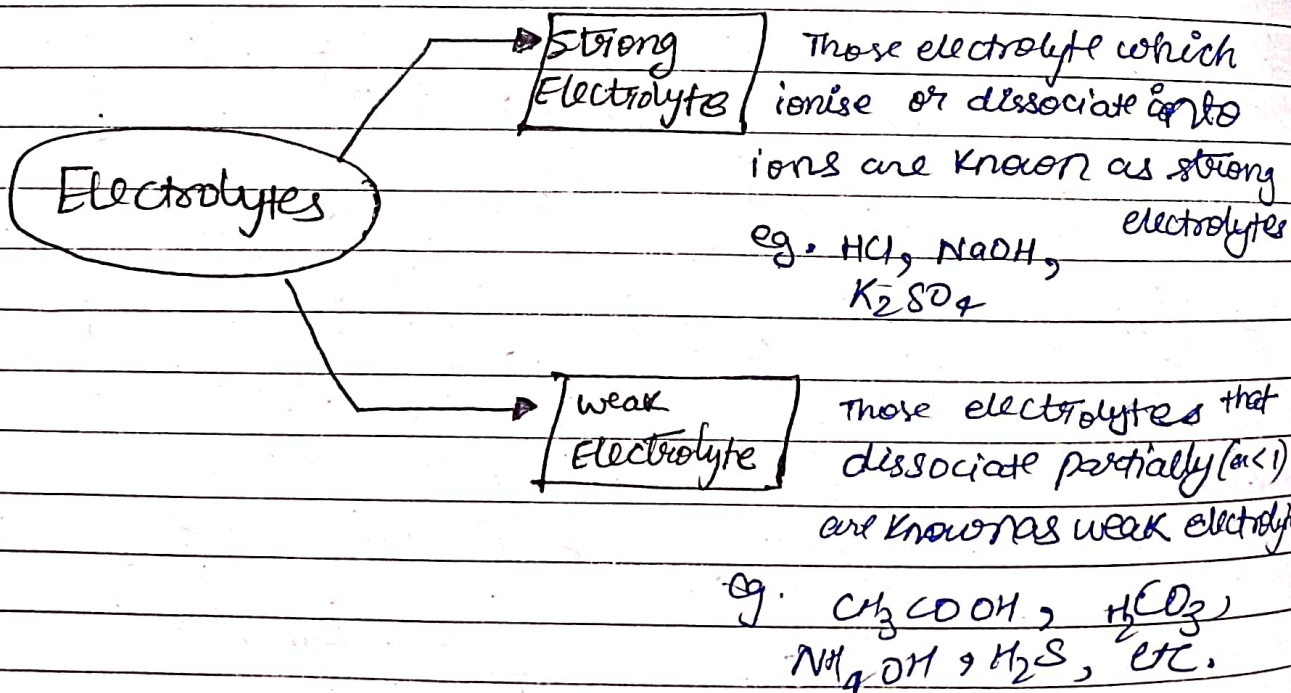 Electrolytes
Strong
Electrolyte
Those electrolyte which
ionise or dissociate into
ions are known as strong
electrolytes
eg. HCl, NaOH,
K2SO4
weak
Electrolyte
Those electrolytes that
dissociate partially (α<1)
are known as weak
eg. CH3COOH, H2CO3,
NH4OH, H2S, etc.